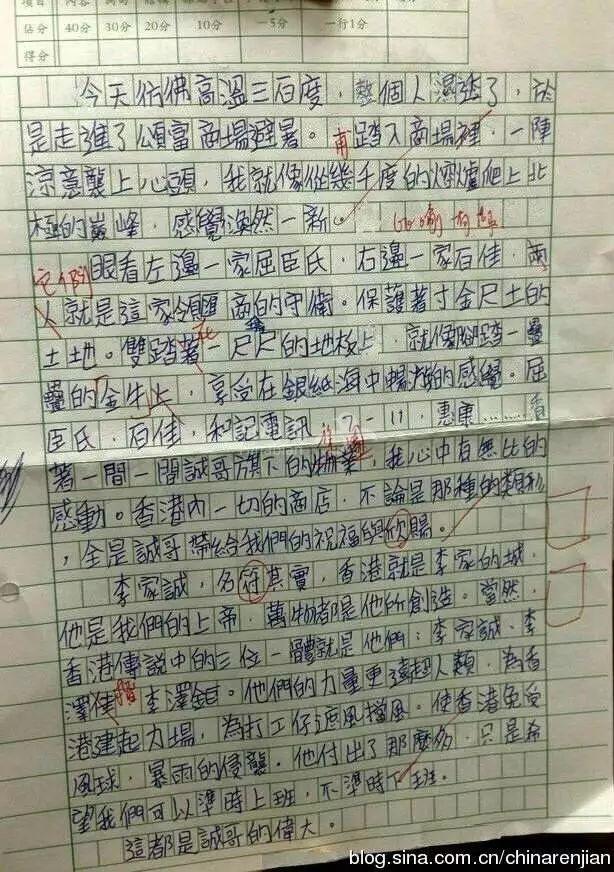 項目
佔分 40分 30分 20分 10分 —5分 一行1分
得分
今天彷彿高溫三百度，整個人濕透了，於
是走進了頌富商場避暑。甫踏入商場裡，一陣
涼意襲上心頭，我就像從幾千度的爐爬上北
極的巔峰，感覺渙然一新。
它們 眼看左邊一家屈臣氏，右邊一家百佳，兩
人就是這家領匯商的守衛。保護著寸金尺土的
土地。雙踏著一尺尺的地板上，就像腳踏一疊
疊的金牛上，享受在銀紙海中暢游的感覺。屈
臣氏，百佳，和記電訊，7-11，惠康……看
著一間一間誠哥旗下的物業，我心中有無比的
感動。香港內一切的商店，不論是那種的類形
，全是誠哥帶給我們的祝福與欣賜。
李家誠，名符其實，香港就是李家的城，
他是我們的上帝，萬物都是他所創造。當然，
香港傳說中的三位一體就是他們：李家誠、李
澤佳楷 李澤鉅。他們的力量更遠超人類，為香
港建起力場，為打工仔遮風擋風。使香港免受
風球，暴雨的侵襲。他付出了那麼多，只是希
望我們可以準時上班，不準時下班。
這都是誠哥的偉大。
blog.sina.com.cn/chinarenjian